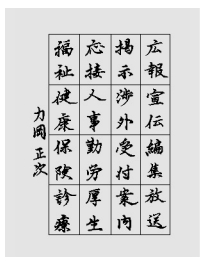 広報 宣伝 編集 放送
掲示 渉外 受付 案内
応接 人事 勤労 厚生
福祉 健康 保険 診療
力岡 正次